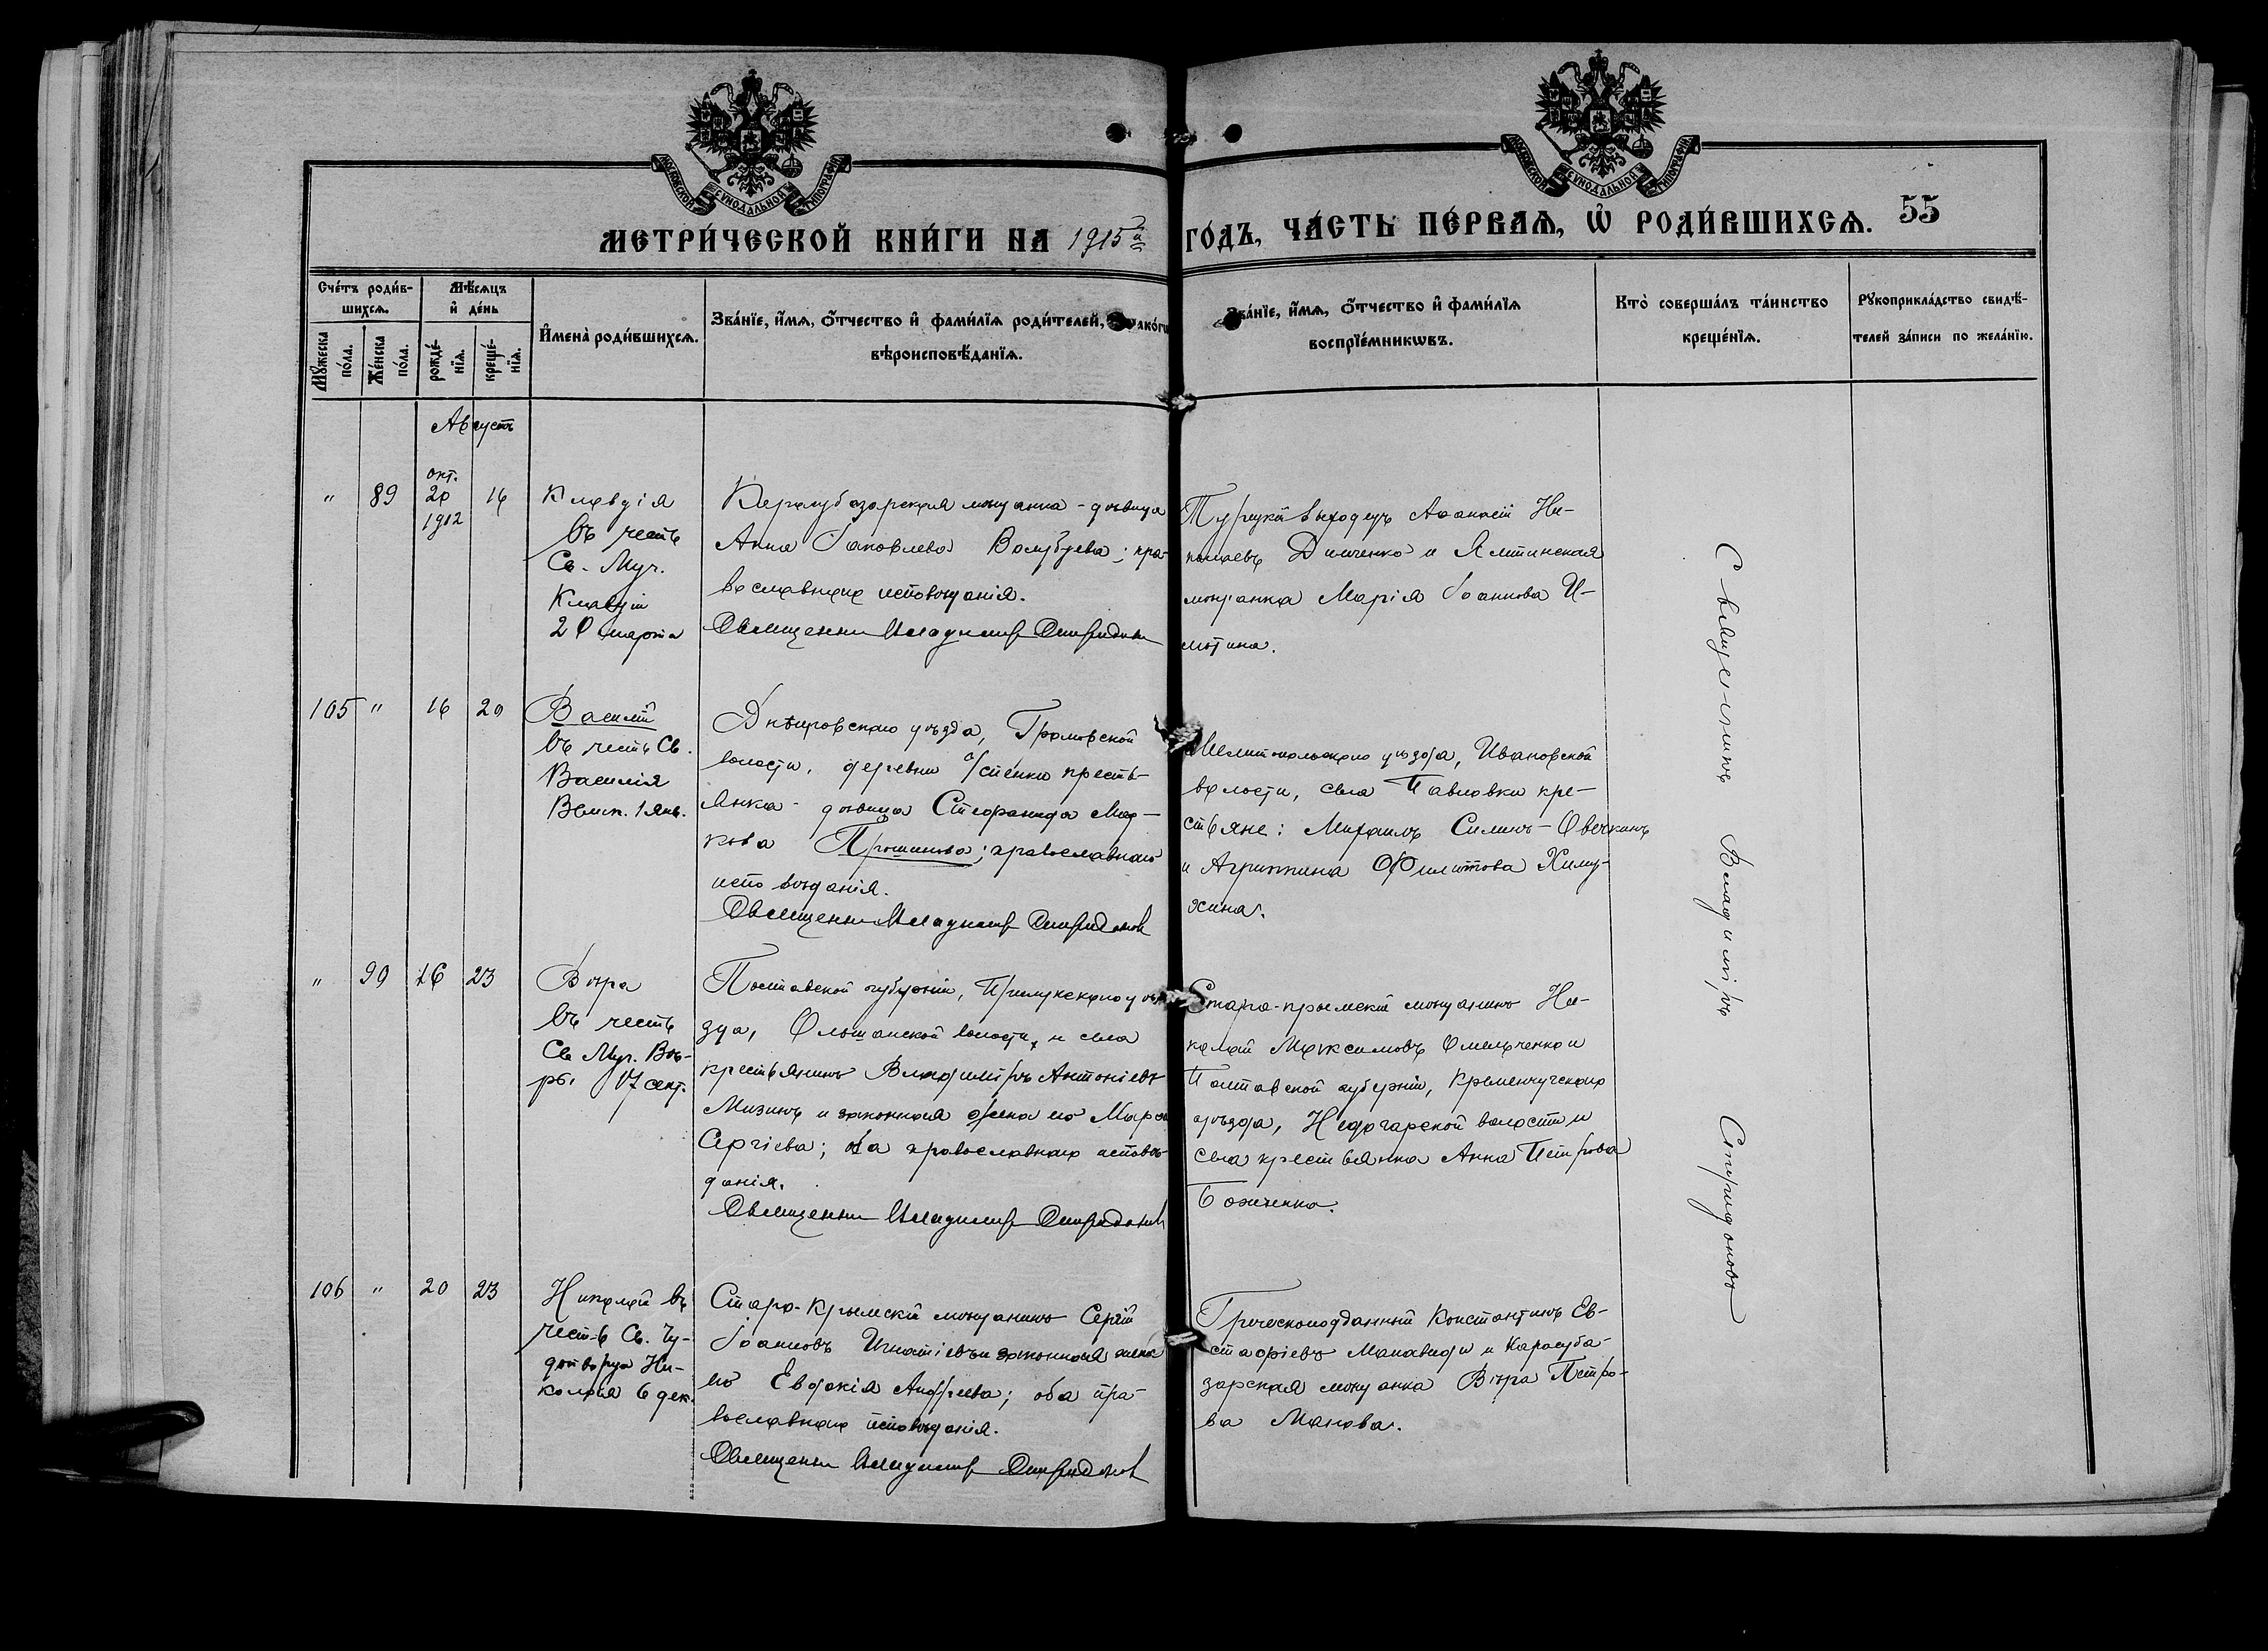 МОСКОВСКОЙ СѴНОДАЛЬНОЙ ТИПОГРАФІИ
МОСКОВСКОЙ СѴНОДАЛЬНОЙ ТИПОГРАФІИ
МЕТРИ́ЧЕСКОЙ КНИ́ГИ НА 1915й ГО́ДЪ, ЧА́СТЬ ПЕ́РВАѦ, Ѡ҆ РОДИ́ВШИХСѦ. 55
Сче́тъ роди́в-
шихсѧ.
Мꙋ́жеска
по́ла.
Же́нска
по́ла.
Мѣ́сѧцъ
и҆ де́нь
рожде́-
нїѧ.
креще́-
нїѧ.
И҆мена̀ роди́вшихсѧ.
Зва́нїе, и҆́мѧ, ѻ҆́тчество и҆ фами́лїѧ роди́телей,
вѣроисповѣ́данїѧ.
Зва́нїе, и҆́мѧ, ѻ҆́тчество и҆ фами́лїѧ
воспрїе́мникѡвъ.
Кто̀ соверша́лъ та́инство
креще́нїѧ.
Рꙋкоприкла́дство свидѣ́-
телей за́писи по жела́нїю.
Августъ
" 89 окт. 20 1912 16
Клавдія
въ честь
Св. Муч.
Клавдіи
20 марта
Карасубазарская мѣщанка - дѣвица
Анна Іаковлева; пра-
вославнаго исповѣданія.
Священникъ Владимиръ Спиридоновъ
Турецкій выходецъ Аѳанасій Ни-
колаевъ Димченко и Ялтинская
мѣщанка Марія Іоаннова
105 " 16 20
Василій
въ честь Св.
Василія
Велик. 1 Янв.
Днѣпровскаго уѣзда, Громовской
волости, деревни кресть-
янка - дѣвица Стефанида
Прошинова; православнаго
исповѣданія.
Священникъ Владимиръ Спиридоновъ
Мелитопольскаго уѣзда, Ивановской
волости, села Павловки кре-
стьяне: Михаилъ Силинъ-Овечкинъ
и Агриппина Филиппова
" 90 16 23
Вѣра
въ честь
Св. Муч. Вѣ-
ры 17 сент.
Полтавской губерніи, Прилукскаго уѣ-
зда, Ольшанской волости и села
крестьянинъ Владиміръ Антоніевъ
Мизинъ и законная жена его
Сергіева; оба православнаго исповѣ-
данія.
Священникъ Владимиръ Спиридоновъ
Старо-крымскій мѣщанинъ Ни-
колай Максимовъ Омельченко и
Полтавской губерніи, Кременчугскаго
уѣзда, волости и
села крестьянка Анна Петрова
Боженко.
106 " 20 23
Николай въ
честь Св. Чу-
дотворца Ни-
колая 6 дек.
Старо-Крымскій мѣщанинъ Сергій
Іоанновъ Игнатіевъ и законная жена
его Евдокія Андреева; оба пра-
вославнаго исповѣданія.
Священникъ Владимиръ Спиридоновъ
Греческоподданный Константинъ Ев-
стафіевъ и Карасуба-
зарская мѣщанка Вѣра Петро-
ва Манова.
Священникъ Владиміръ Спиридоновъ